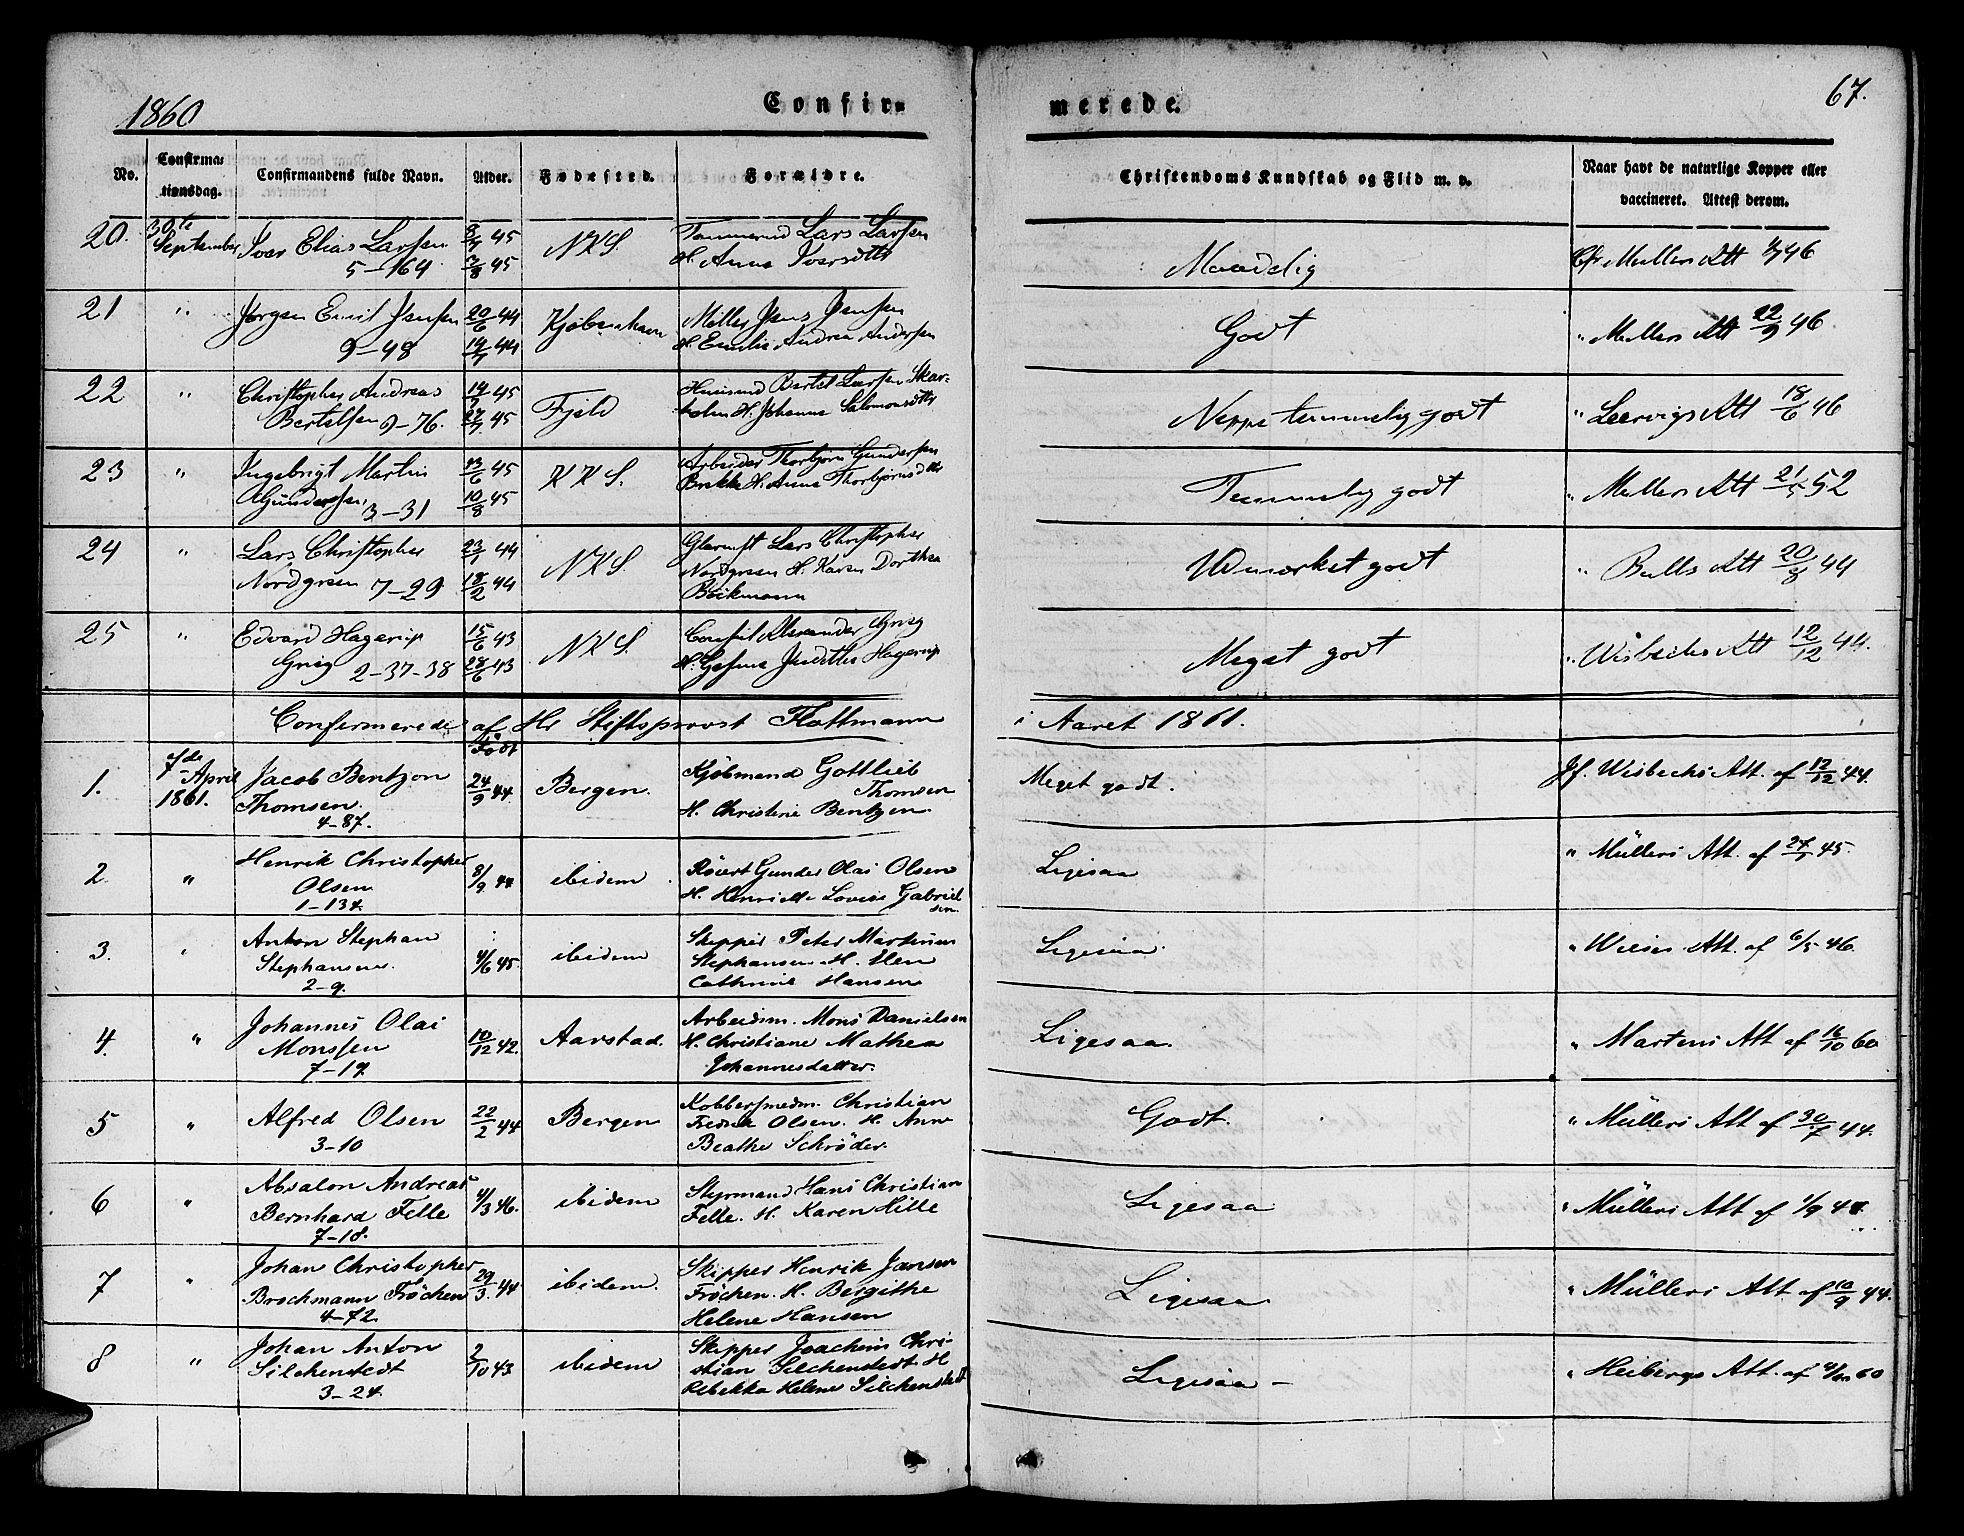 1860
Confir-
merede.
67.
No.
Confirma-
tionsdag.
Confirmandens fulde Navn.
Alder.
Fødested.
Forældre.
Christendoms Kundskab og Flid m. v.
Naar havt de naturlige Kopper eller
vaccineret. Attest derom.
20.
30te
September
Iver Elias Larsen
5-164
45
45
NKS.
Lars Larsen
H. Anna Iversdtr
Maadelig
Mullers Att 46
21
"
Jørgen Emil Jensen
9-48
20/6 44
14/7 44
Kjøbenhavn
Møller Jens Jensen
H. Emilie Andrea Andersen
Godt
" Mullers Att 22/9 46
22
"
Christopher Andreas
Bertelsen 9-76.
45
45
Fjeld
Huusmd Bertel Larsen Skar-
holm H. Johanne Salomonsdtr
Neppe temmelig godt
" Leervigs Att 18/6 46
23
"
Ingebrigt Martin
Gundersen 3-31
13/6 45
10/8 45
KKS.
Arbeider Thorbjørn Gundersen
Brekke H. Anna Thorbjørnsdtr
Temmelig godt
" Mullers Att 21/5 52
24
"
Lars Christopher
Nordgreen 7-29
23/1 44
18/2 44
NKS.
Lars Christopher
Nordgreen H. Karen Dorthea
Böckmann
Udmærket godt
" Bulls Att 20/8 44
25
"
Edvard Hagerup
Grieg 2-37-38
15/6 43
28/6 43
NKS.
Consul Alexander Grieg
H. Gesine Judithe Hagerup
Meget godt
" Wisbechs Att 12/12 44.
Confirmerede af Hr Stiftsprovst Flottmann
i Aaret 1861.
Født
1.
7de
April
1861.
Jacob Bentzon
Thomsen.
4-87.
24/9 44.
Bergen.
Kjøbmand Gottlieb
Thomsen
H. Christine Bentzen
Meget godt.
Jf. Wisbechs Att. af 12/12 44.
2.
"
Henrik Christopher
Olsen
1-134.
8/9 44
ibidem.
Gunder Olai Olsen
H. Henriette Lovise Gabriel
sen.
Ligesaa
" Müllers Att. af 45.
3.
"
Anton Stephan
Stephansen.
2-9.
4/6 45.
ibidem
Skipper Peter Martinus
Stephansen H. Elen
Cathrine Hansen
Ligesaa.
" Wieses Att. af 6/5 46.
4.
"
Johannes Olai
Monssen
7-19.
10/12 42.
Aarstad.
Arbeidsm. Mons Danielsen
H. Christiane Mathea
Johannesdatter.
Ligesaa.
" Martens Att af 16/10 60
5
"
Alfred Olsen
3-10
22/2 44
Bergen
Kobbersmedm. Christian
Fredrik Olsen. H. Anne
Beathe Schrøder.
Godt.
" Müllers Att af 30/7 44.
6
"
Absalon Andreas
Bernhard Felle
7-18.
4/3 46.
ibidem
Styrmand Hans Christian
Felle. H. Karen Hille
Ligesaa
" Müllers Att af 1/9
7
"
Johan Christopher
Brochmann Frøchen
4-72.
29/3. 44
ibidem.
Skipper Henrik Jansen
Frøchen. H. Bergithe
Helene Hansen
Ligesaa
" Müllers Att. af 10/9 44.
8
"
Johan Anton
Silchenstedt
3-24.
2/10 43
ibidem
Skipper Joachim Chri-
stian Silchenstedt H
Rebekka Helene Silchenstedt
Ligesaa-
" Heibergs Att. af 60